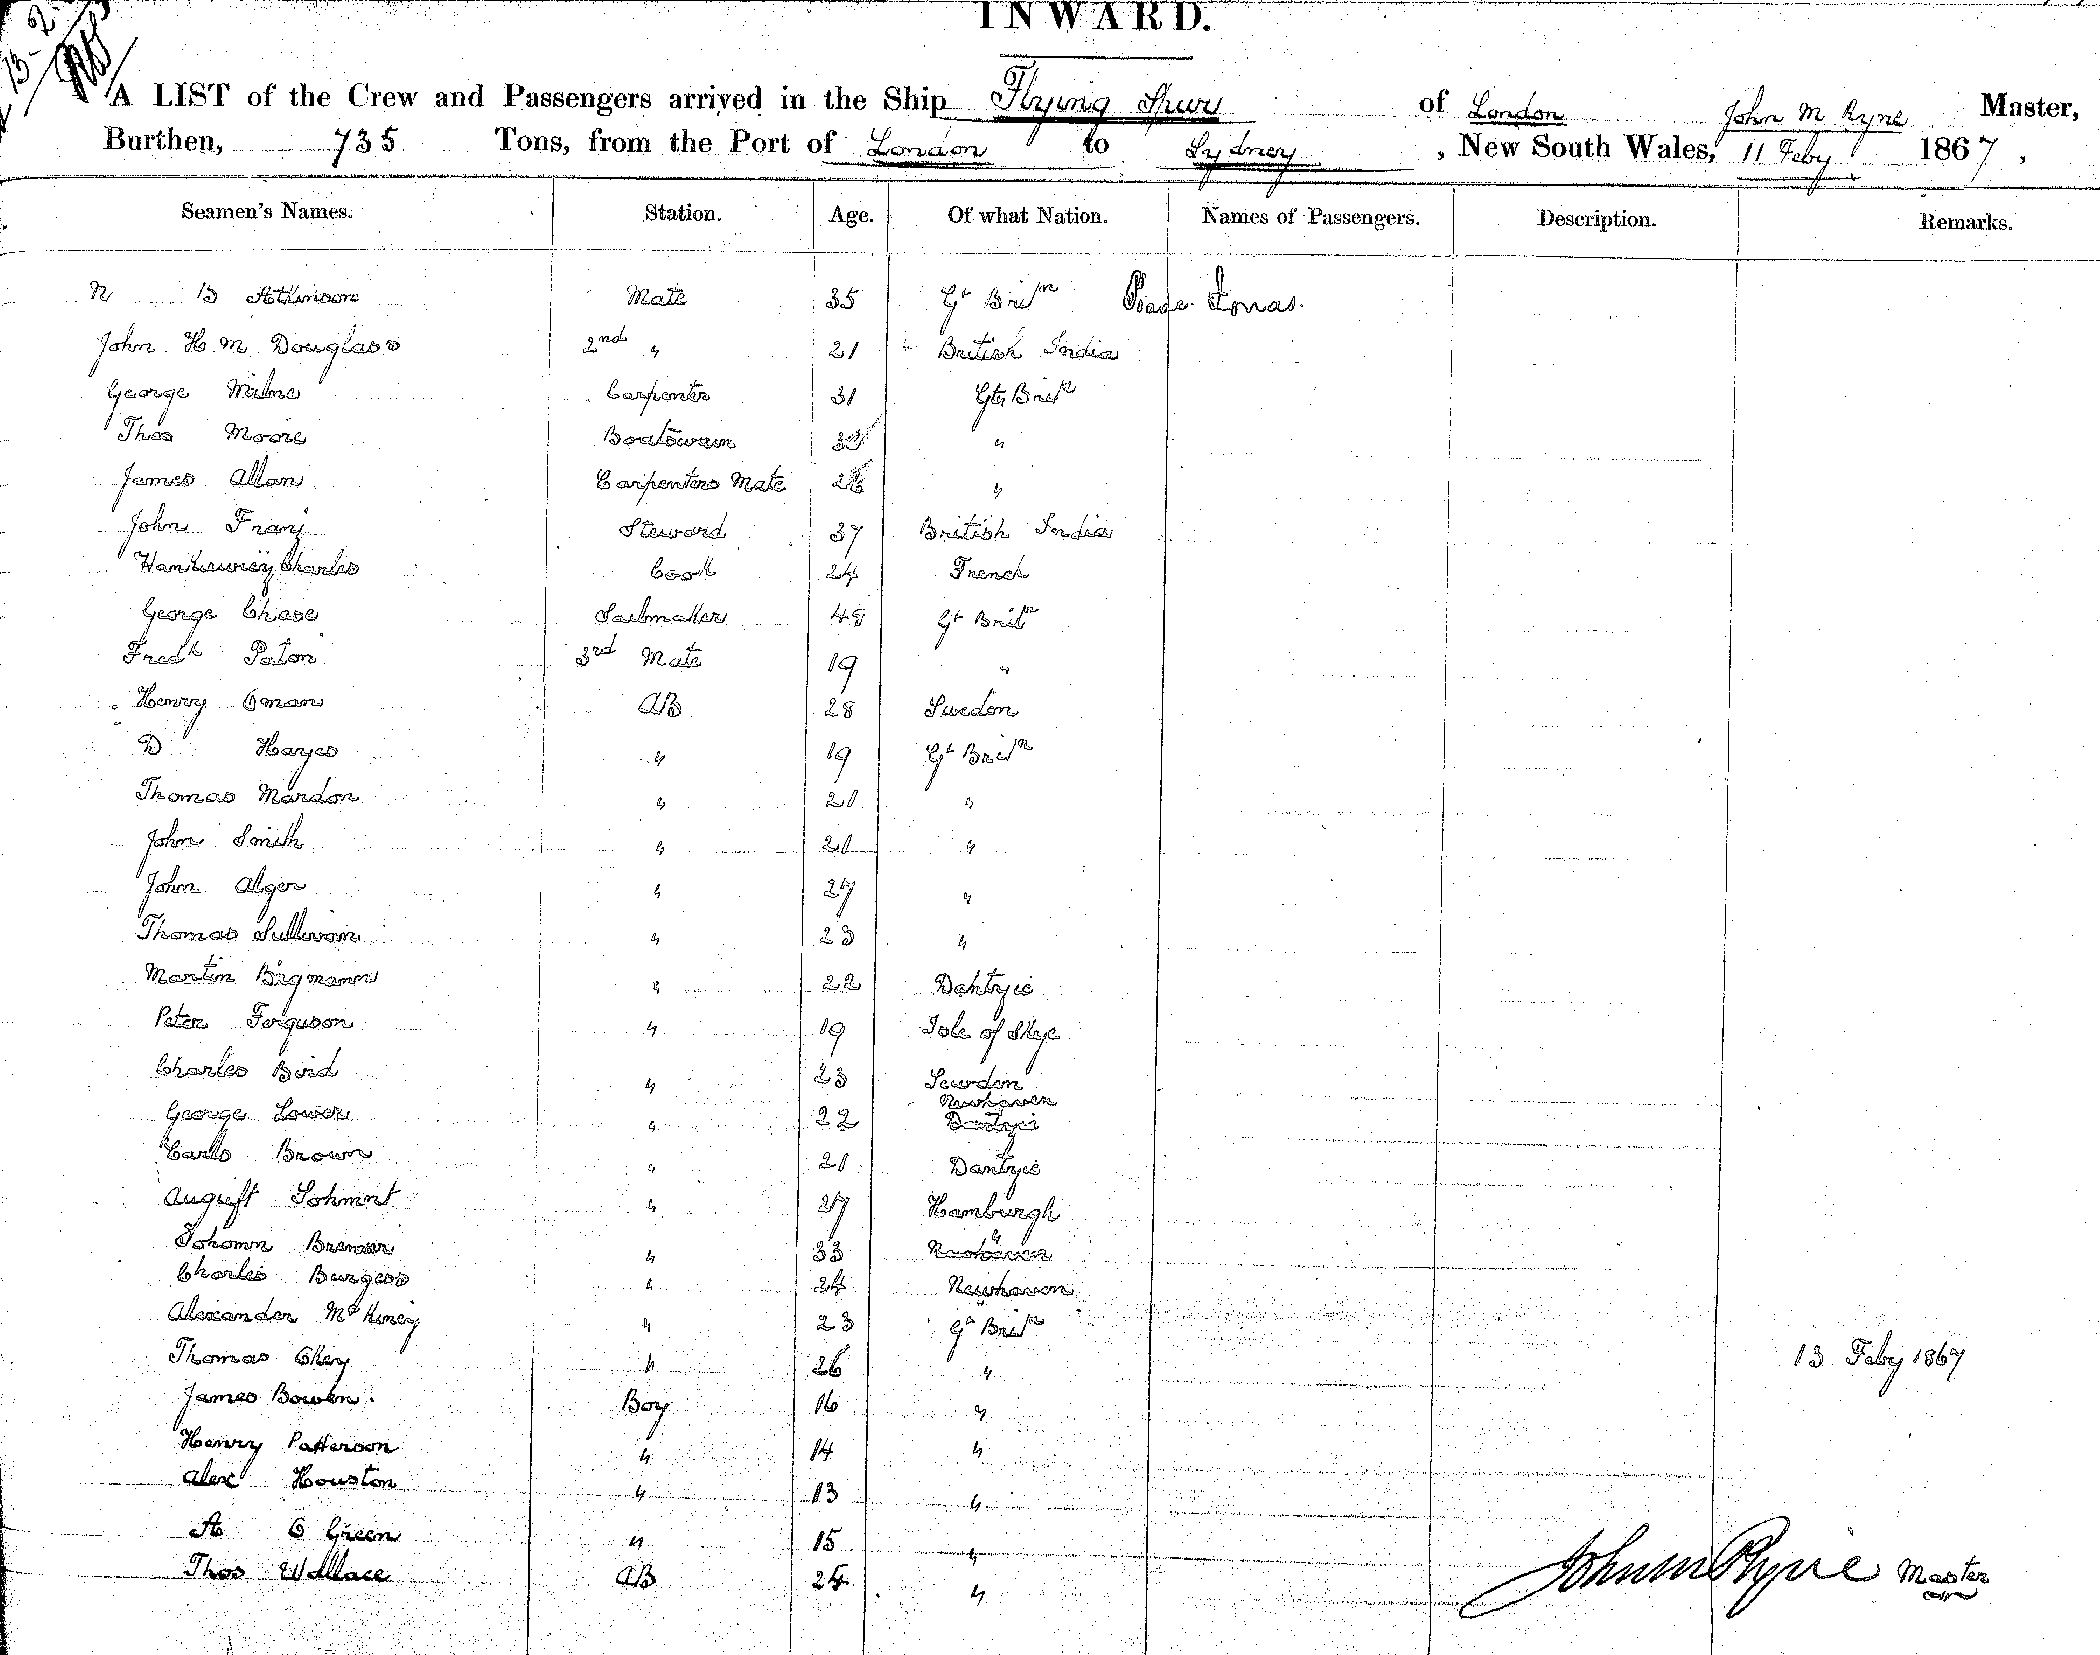 13-2-
INWARD.
A LIST of the Crew and Passengers arrived in the Ship Flying Spur of London John M Ryne Master,
Burthen, 735 Tons, from the Port of London to Sydney, New South Wales, 11 Feby 1867,
Seamen's Names. Station. Age. Of what Nation. Names of Passengers. Description. Remarks.
N B Atkinson Mate 35 Gt Britn Jonas.
John H. M. Douglass 2nd " 21 British India
George Milne Carpenter 31 Gt Britn
Thos Moore Boatswain "
James Allan Carpenters Mate "
John Franz Steward 37 British India
Charles Cook 24 French
George Chase Sailmaker 48 Gt Britn
Fredk Paton 3rd Mate 19 "
Henry Oman AB 28 Sweden
D Hayes " 19 Gt Britn
Thomas Mardon " 21 "
John Smith " 21 "
John Alger " 27 "
Thomas Sullivan " 23 "
Martin Bigmann " 22 Dantzic
Peter Ferguson " 19 Isle of Skye
Charles Bird " 23 Sweden
George Lower " 22 Newhaven
Carls Brown " 21 Dantzic
August Sohmnt " 27 Hamburgh
Johann Bremer " 33 "
Charles Burgess " 24 Newhaven
Alexander McKiney " 23 Gt Britn
Thomas Okey " 26 " 13 Feby 1867
James Bowen. Boy 16 "
Henry Patterson " 14 "
Alex Houston " 13 "
A O Green " 15 "
Thos Wallace AB 24 "
John M Ryne Master